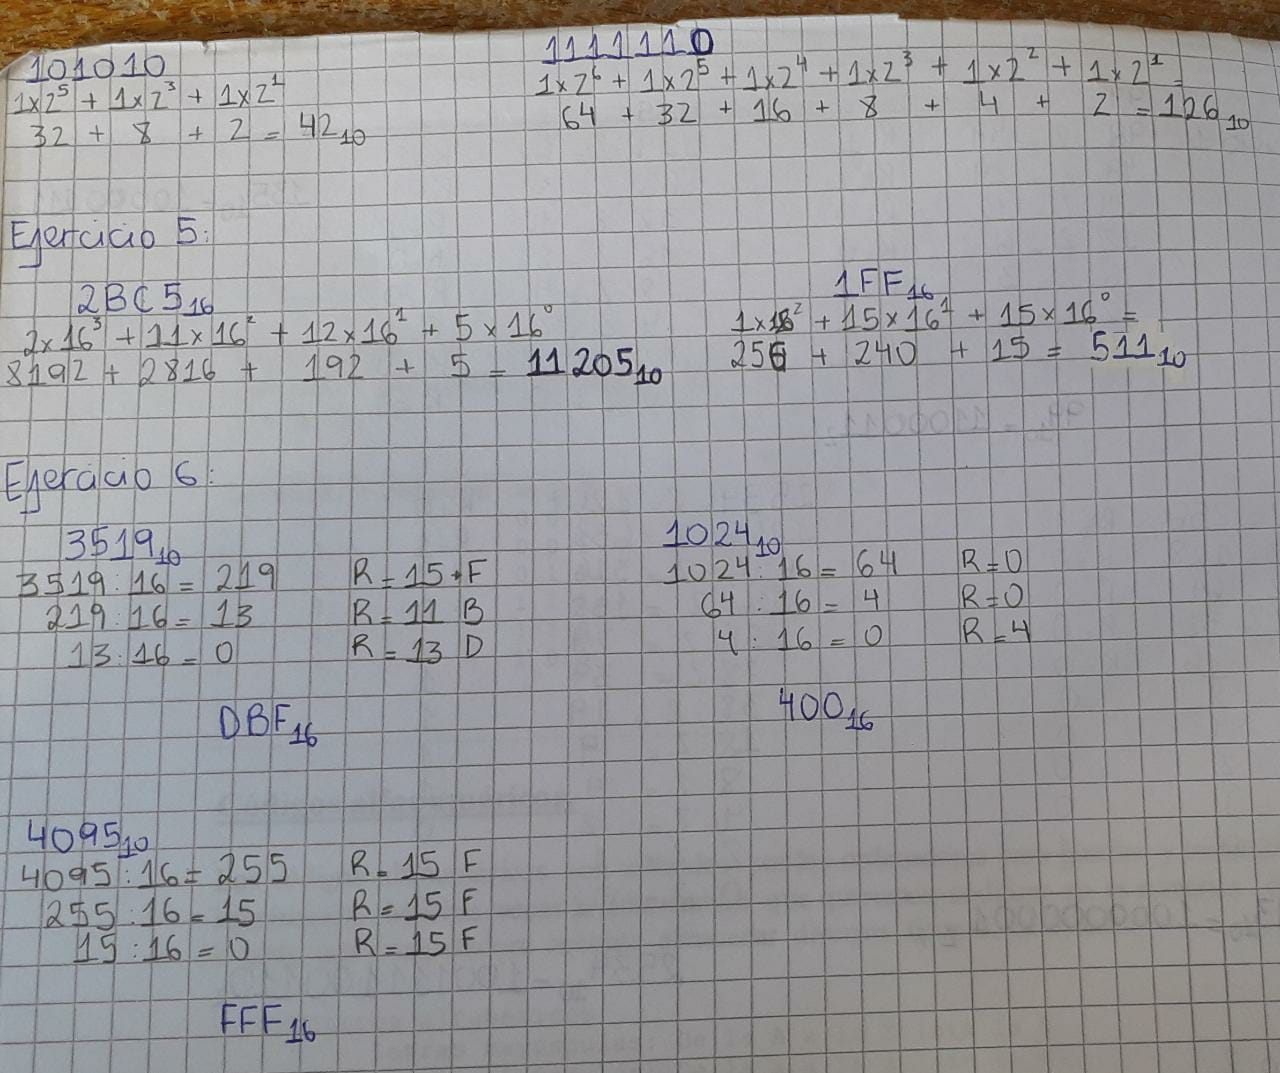 101010
1x2⁵ + 1x2³ + 1x2¹
32 + 8 + 2 = 42₁₀
1111110
1x2⁶ + 1x2⁵ + 1x2⁴ + 1x2³ + 1x2² + 1x2¹ =
64 + 32 + 16 + 8 + 4 + 2 = 126₁₀
Ejercicio 5:
2BC5₁₆
2x16³ + 11x16² + 12x16¹ + 5x16⁰
8192 + 2816 + 192 + 5 = 11205₁₀
1FF₁₆
1x16² + 15x16¹ + 15x16⁰ =
256 + 240 + 15 = 511₁₀
Ejercicio 6:
3519₁₀
3519:16 = 219 R=15 F
219:16 = 13 R=11 B
13:16 = 0 R=13 D
DBF₁₆
1024₁₀
1024:16 = 64 R=0
64:16 = 4 R=0
4:16 = 0 R=4
400₁₆
4095₁₀
4095:16 = 255 R=15 F
255:16 = 15 R=15 F
15:16 = 0 R=15 F
FFF₁₆